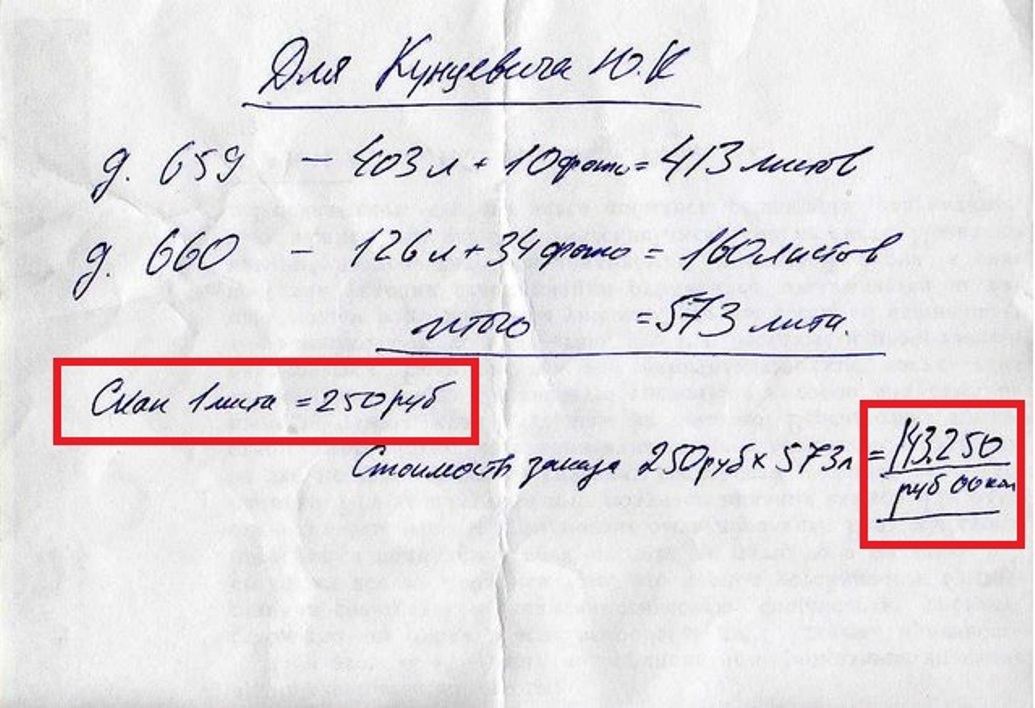 Для Кунцевича Ю.К
д. 659 – 403 л + 10 фото = 413 листов
д. 660 – 126 л + 34 фото = 160 листов
итого = 573 листа.
Скан 1 листа = 250 руб
Стоимость заказа 250 руб х 573 л = 143.250
руб 00 коп